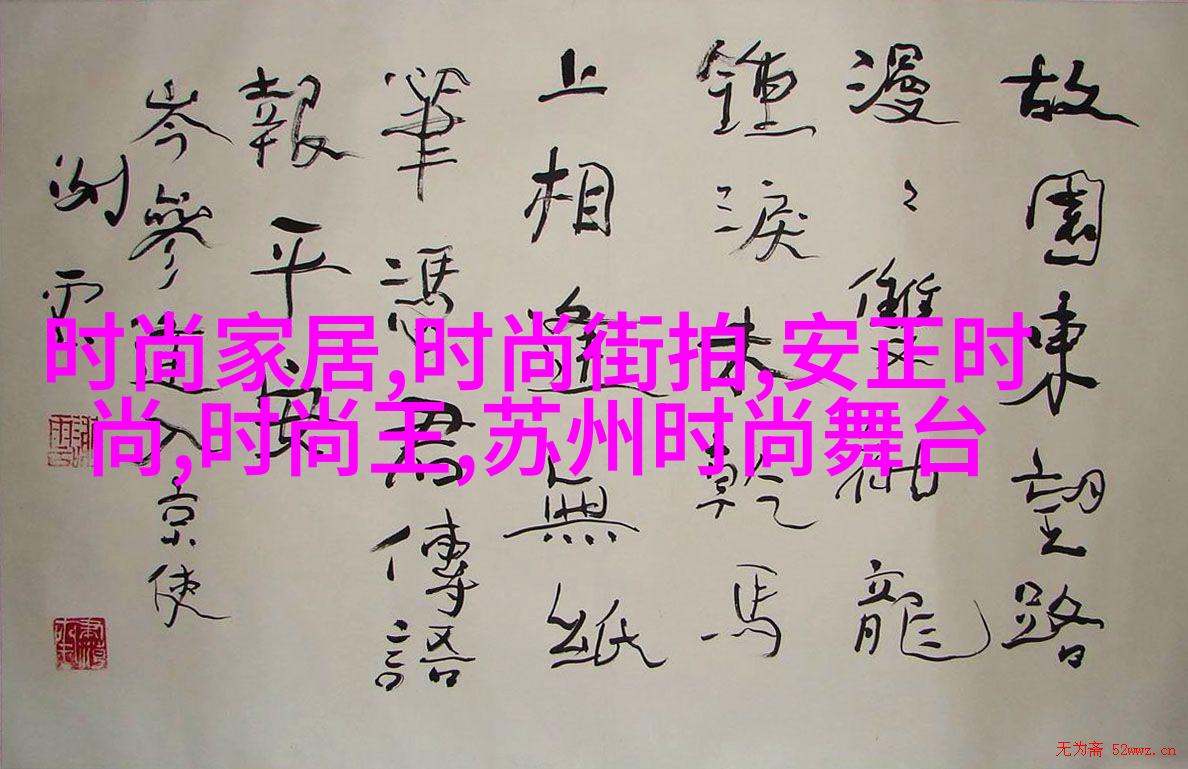 故園東望路
漫〻雙袖龍
鍾淚未乾馬
上相逢無紙
筆馮君傳語
報平安
岑參逢入京使
谢雨
时尚家居,时尚街拍,安正时
尚,时尚王,苏州时尚舞台
无为斋 52wwz.cn